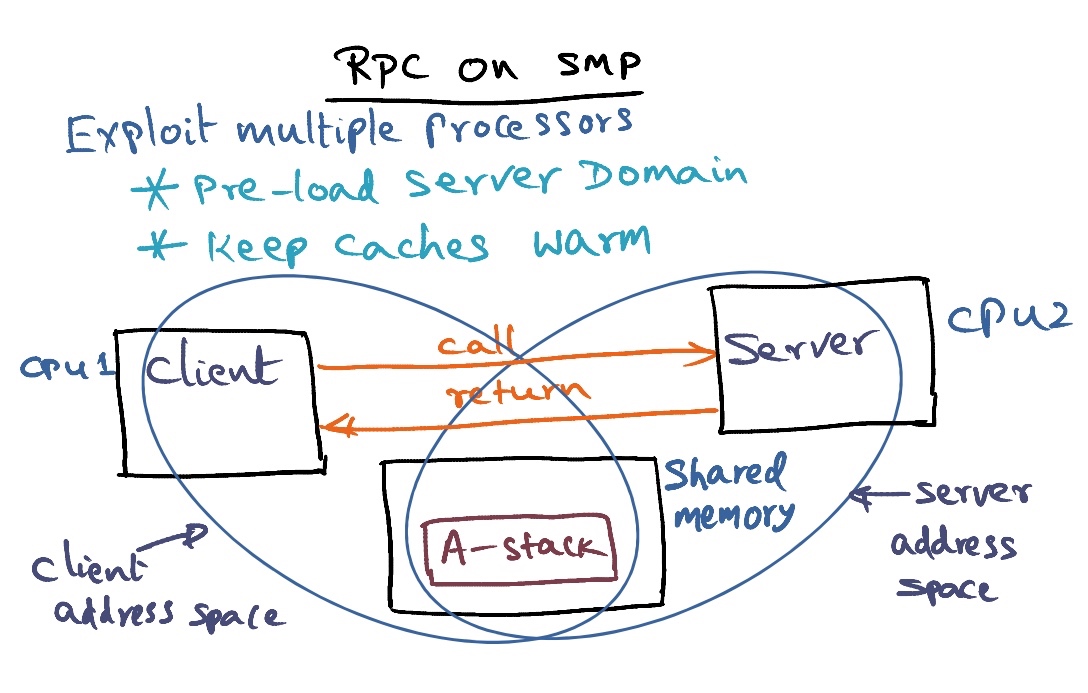 RPC on SMP
Exploit multiple Processors
* Pre-load Server Domain
* Keep Caches warm
CPU1
Client
call
return
Server
CPU2
Shared
memory
A-stack
Client
address space
Server
address
space